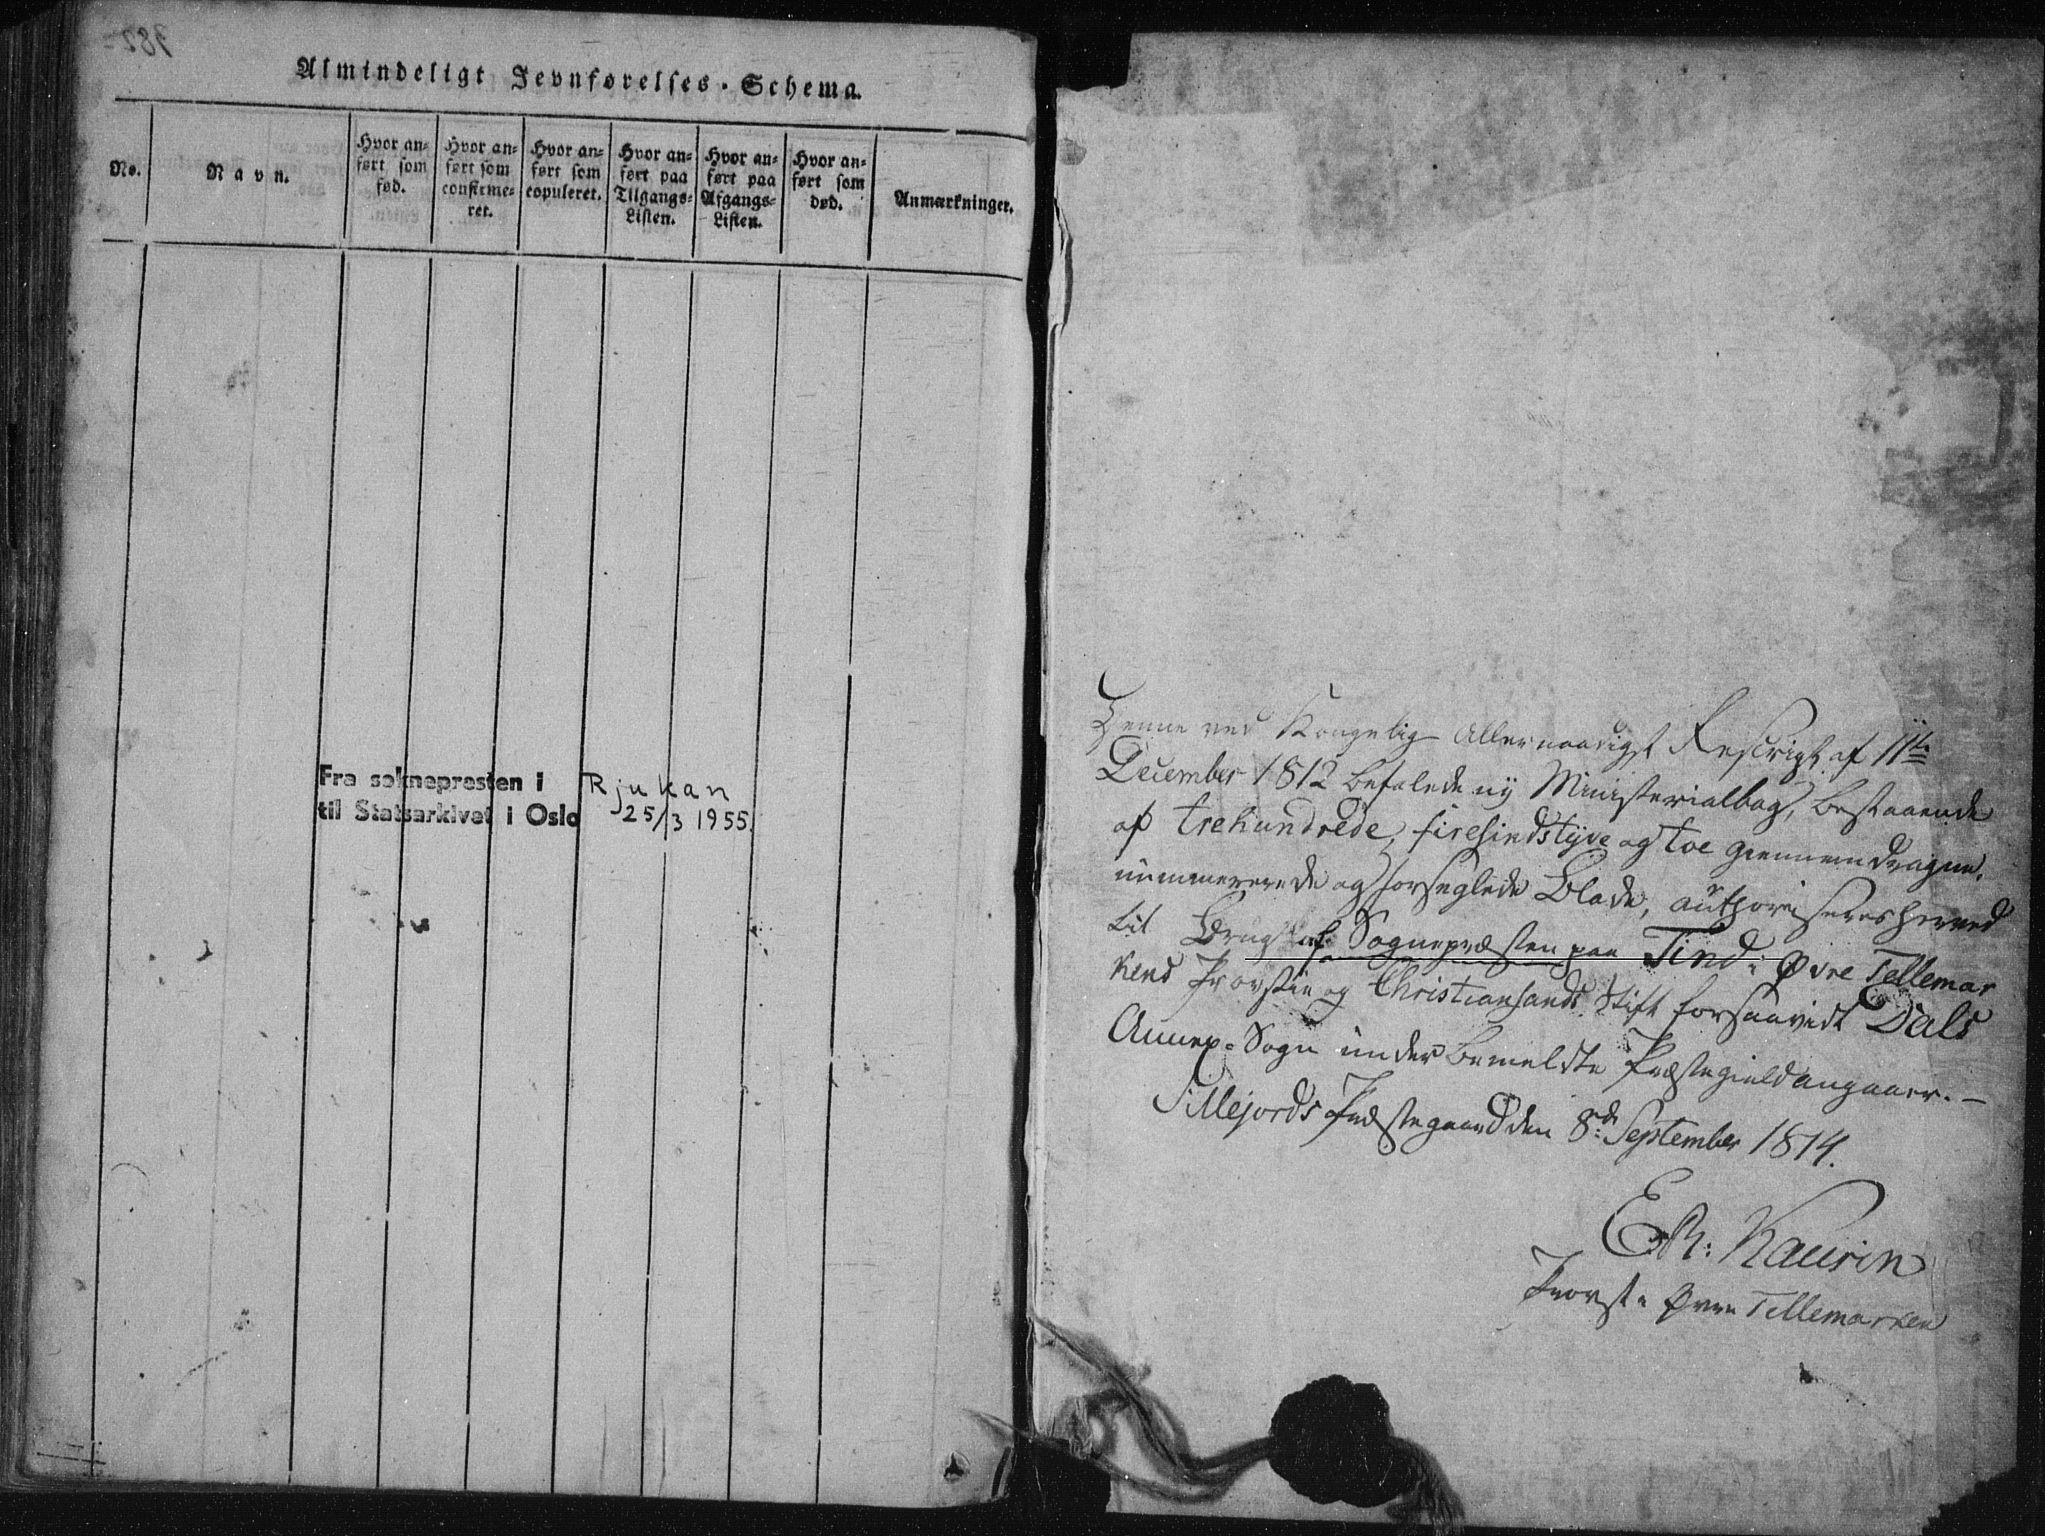 382
Almindeligt Jevnførelses-Schema.
No.
Navn.
Hvor an-
ført som
fød.
Hvor an-
ført som
confirme-
ret.
Hvor an-
ført som
copuleret.
Hvor an-
ført paa
Tilgangs-
Listen.
Hvor an-
ført paa
Afgangs-
Listen.
Hvor an-
ført som
død.
Anmærkninger.
Fra soknepresten i Rjukan
til Statsarkivet i Oslo 25/3 1955.
Denne ved Kongelig allernaadigst Rescript af 11te
December 1812 befalede ny Ministerialbog, bestaaende
af trehundrede, firesindstyve og toe giennemdragne,
nummererede og forseglede Blade, authoriseres herved
til Brug af Sognepræsten paa Tind i Øvre Tellemar
kens Provstie og Christiansands Stift forsaavidt Dals
Annex-Sogn under bemeldte Præstegield angaaer. —
Sillejords Præstegaard den 8de September 1814.
Kaurin
Provst i Øvre Tellemarken